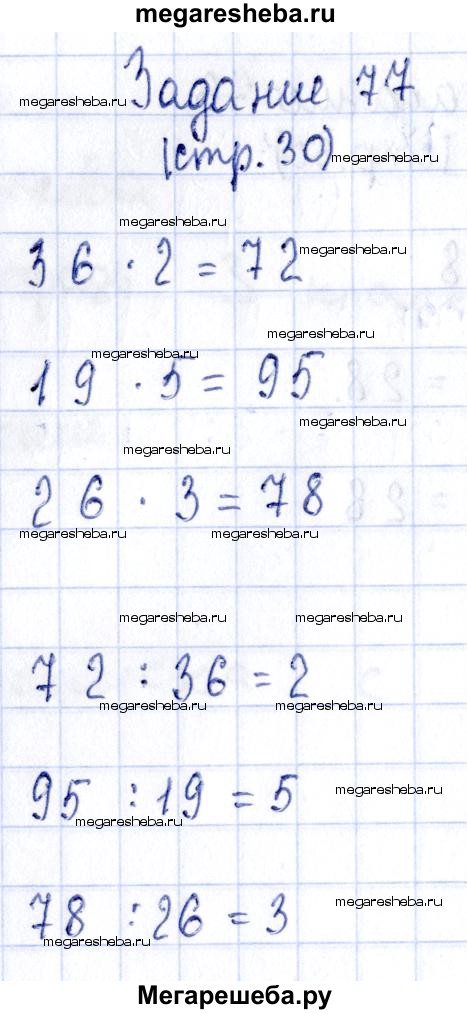 megaresheba.ru
Задание 77
megaresheba.ru
(стр. 30)
megaresheba.ru
megaresheba.ru
36 · 2 = 72
megaresheba.ru
megaresheba.ru
megaresheba.ru
19 · 5 = 95
megaresheba.ru
megaresheba.ru
26 · 3 = 78
megaresheba.ru megaresheba.ru
megaresheba.ru megaresheba.ru
72 : 36 = 2
megaresheba.ru megaresheba.ru
95 : 19 = 5
megaresheba.ru
megaresheba.ru
78 : 26 = 3
megaresheba.ru
megaresheba.ru
Мегарешеба.ру